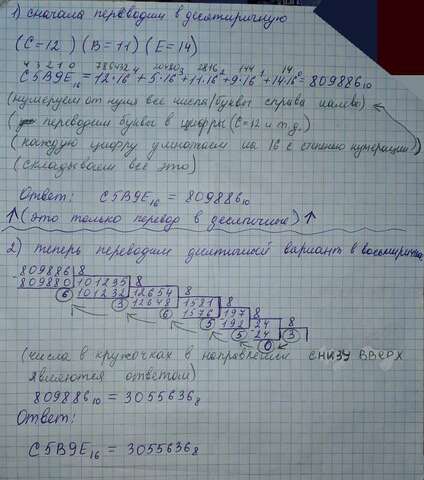 1) сначала переводим в десятиричную
(C=12) (B=11) (E=14)
4 3 2 1 0 786432 20480 2816 144 14
C5B9E₁₆ = 12·16⁴ + 5·16³ + 11·16² + 9·16¹ + 14·16⁰ = 809886₁₀
(нумеруем от нуля все числа/буквы справа налево)
( переводим буквы в цифры (C=12 и т.д.)
(каждую цифру умножаем на 16 с степенью нумерации)
(складываем всё это)
Ответ: C5B9E₁₆ = 809886₁₀
↑(это только перевод в десятичные)↑
2) теперь переводим десятичный вариант в
809886 8
809880 101235 8
6 101232 12654 8
3 12648 1581 8
6 1576 197 8
5 192 24 8
5 24 3
0
(числа в кружочках в направлении СНИЗУ ВВЕРХ
являются ответом)
809886₁₀ = 3055636₈
Ответ:
C5B9E₁₆ = 3055636₈